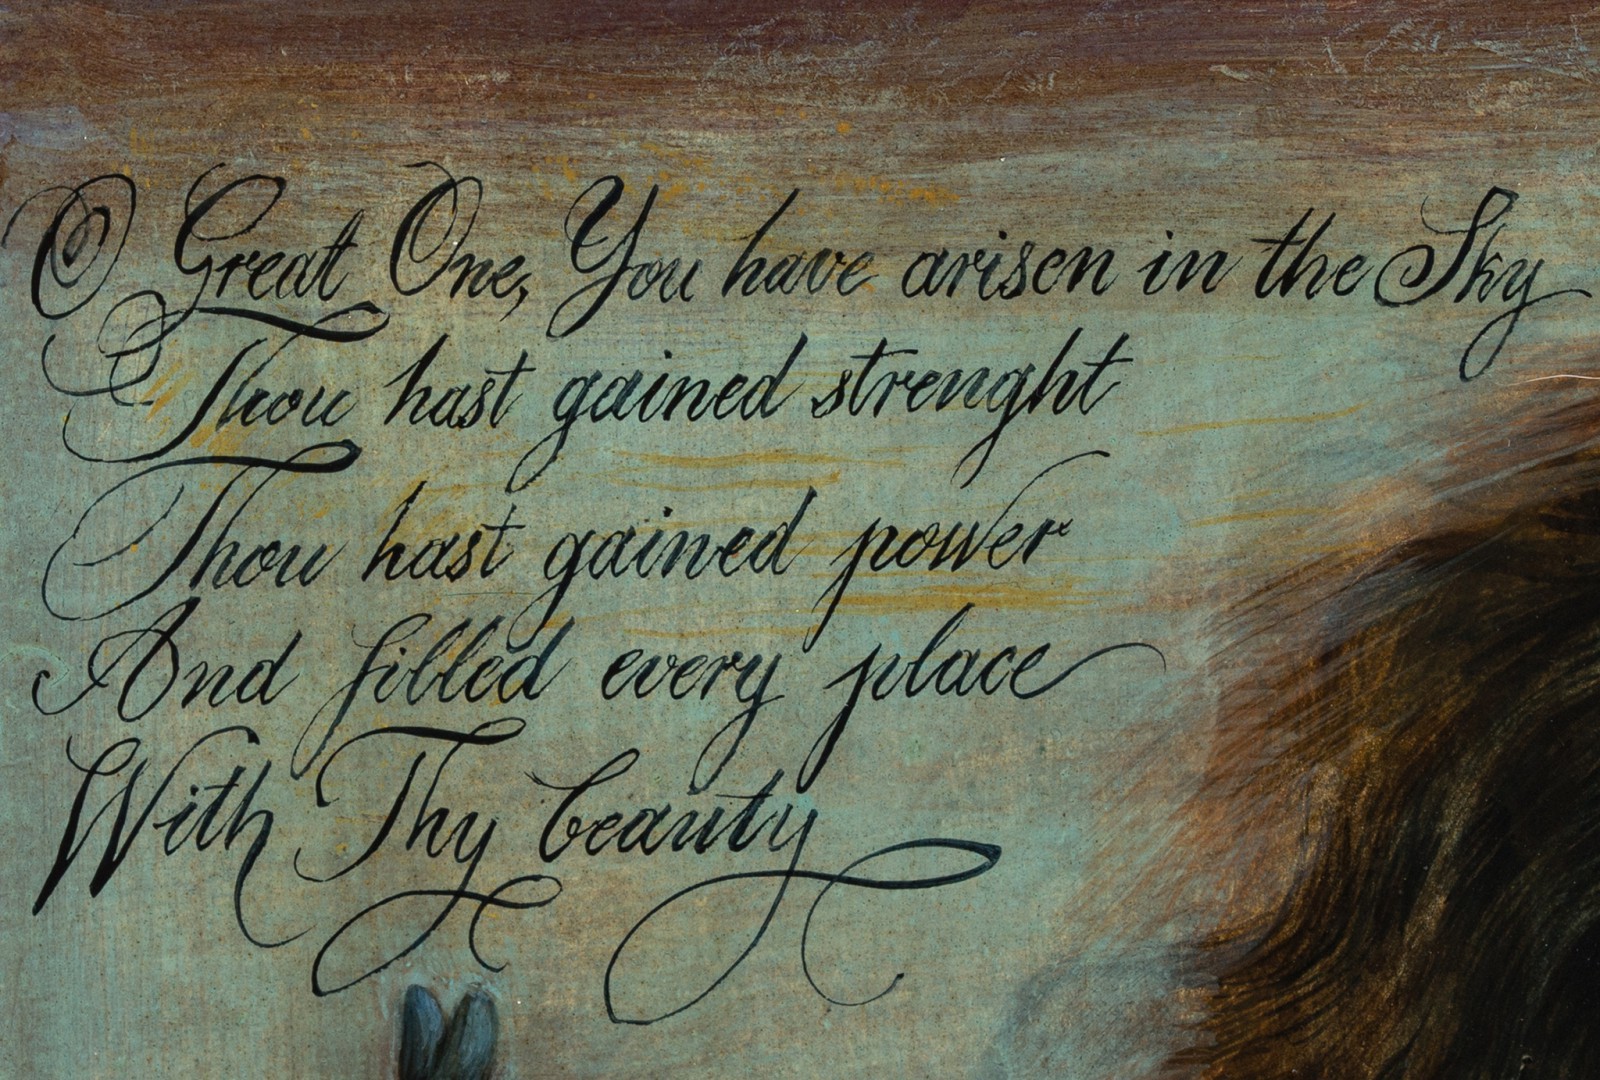 O Great One, You have arisen in the Sky
Thou hast gained strenght
Thou hast gained power
And filled every place
With Thy beauty